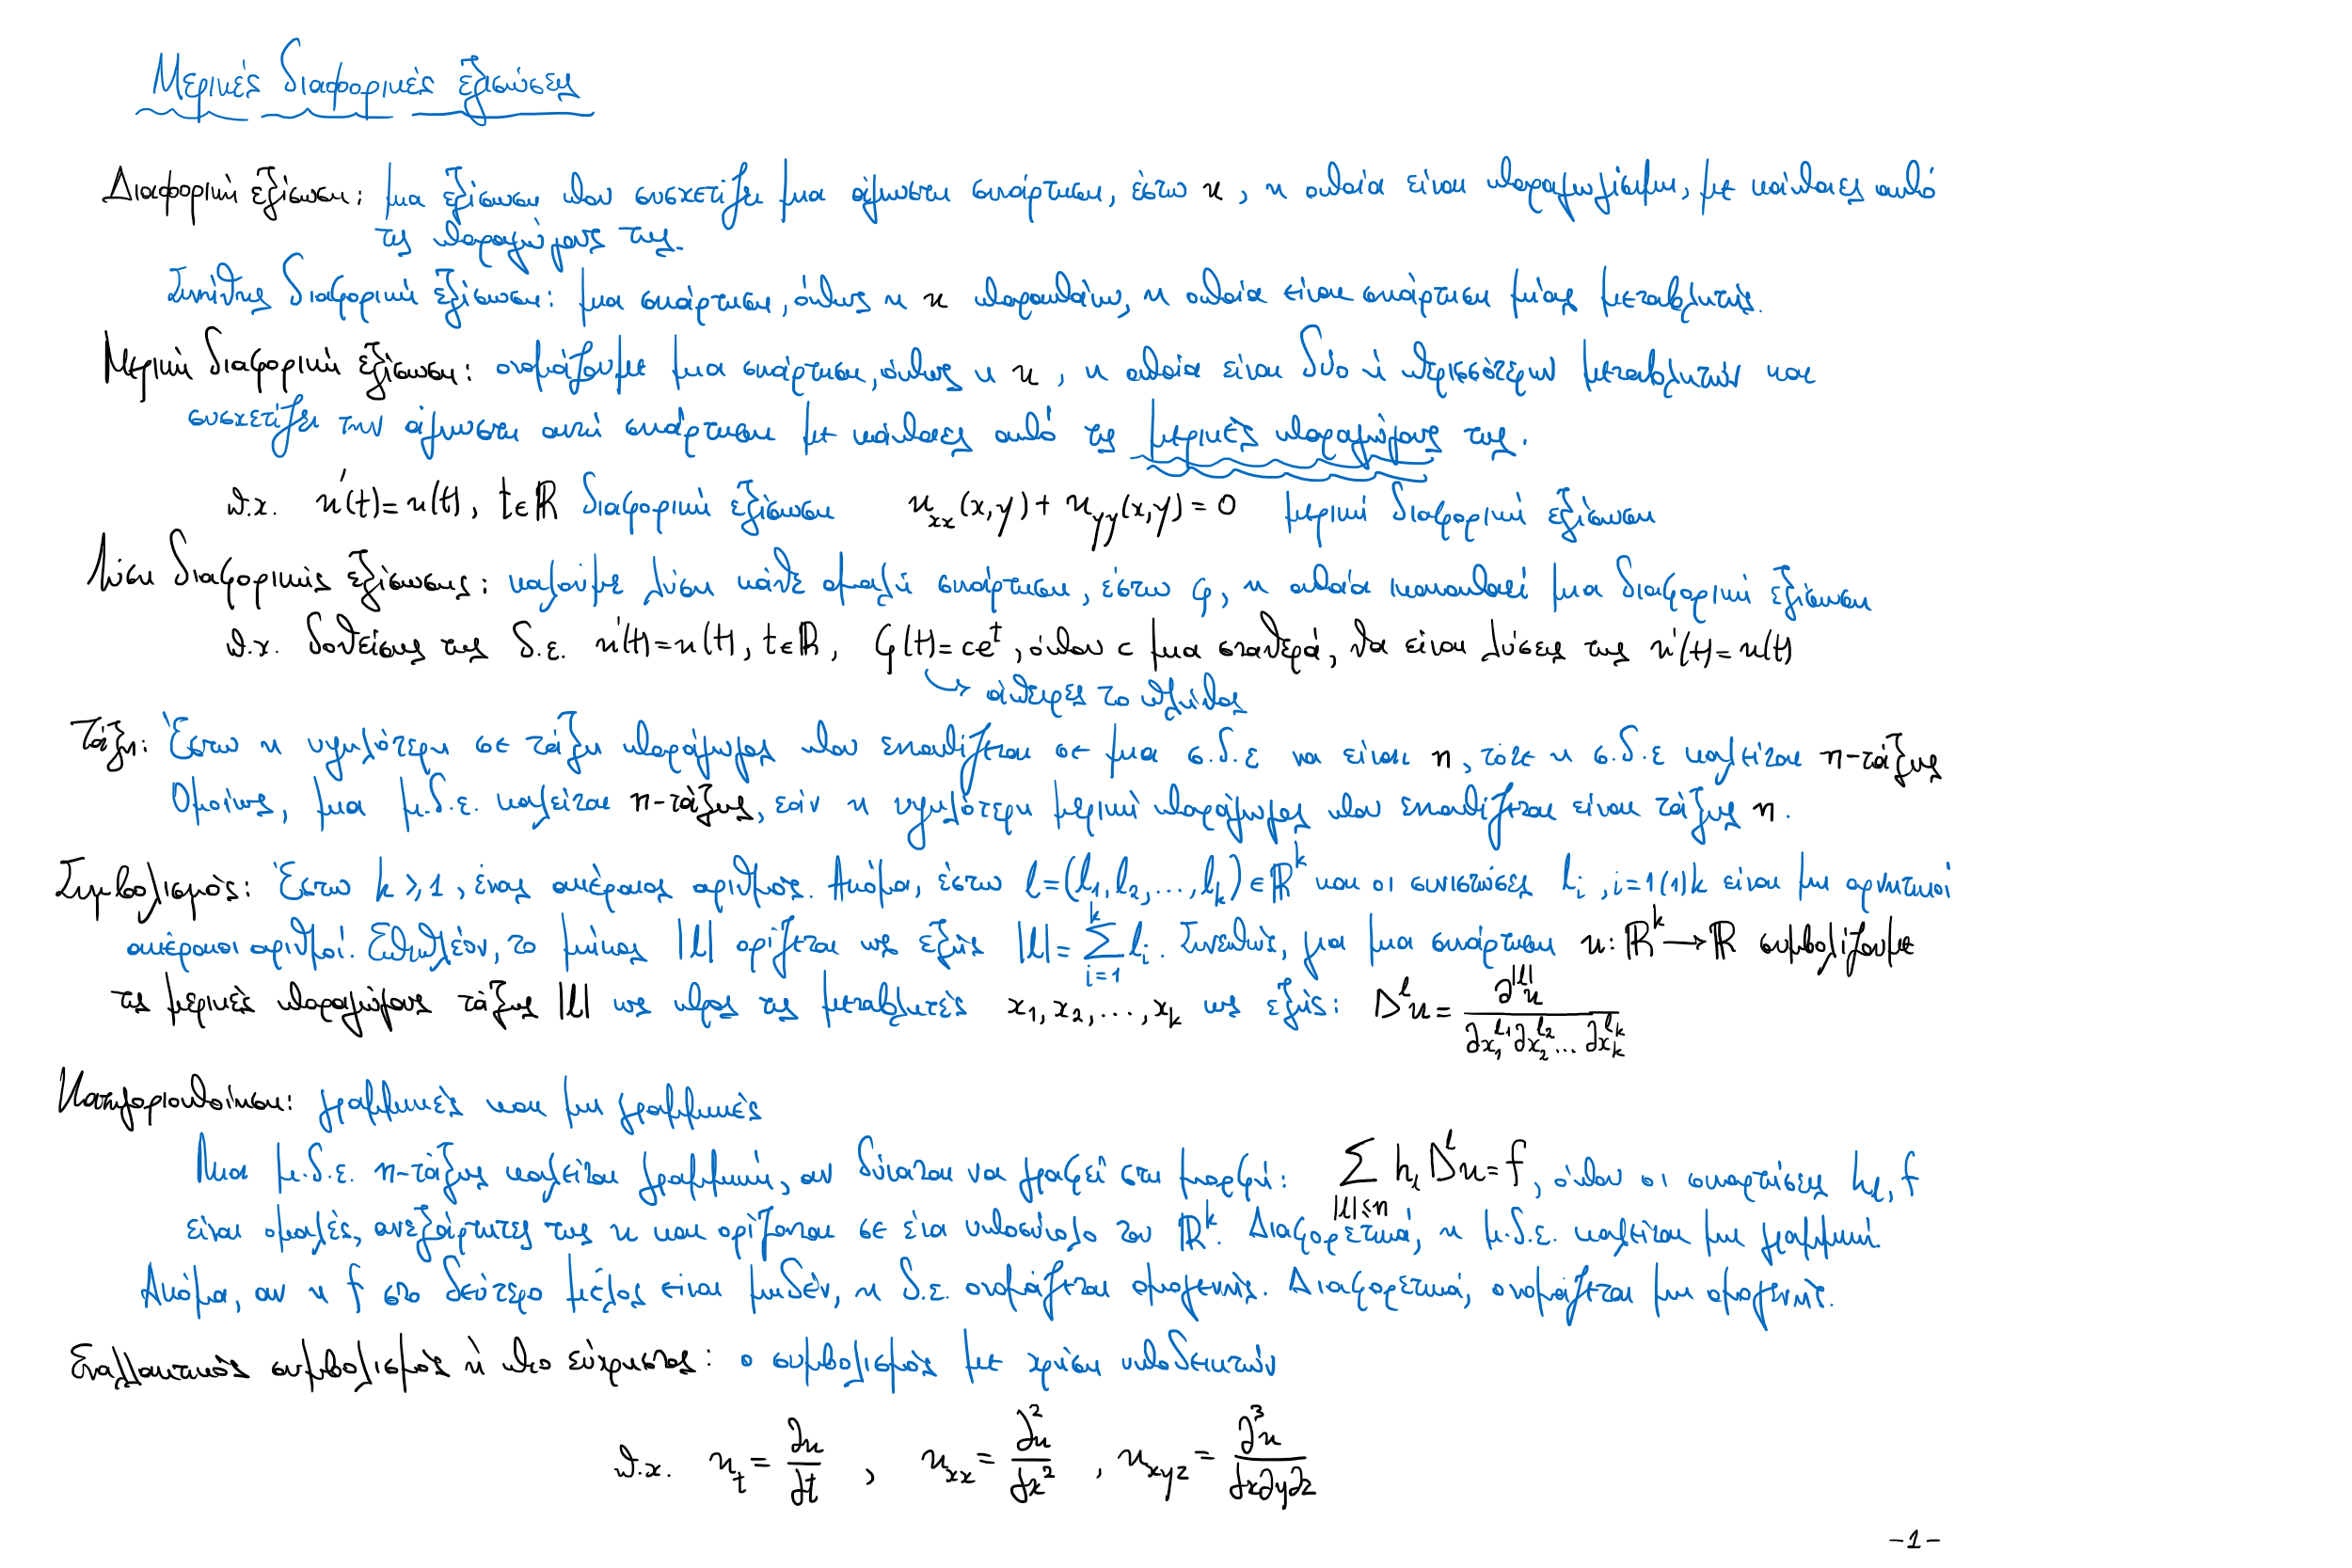 Μερικές διαφορικές εξισώσεις
Διαφορική εξίσωση: μια εξίσωση που συσχετίζει μια άγνωστη συνάρτηση, έστω u, η οποία είναι παραγωγίσιμη, με κάποιες από
τις παραγώγους της.
Συνήθης διαφορική εξίσωση: μια συνάρτηση, όπως η u παραπάνω, η οποία είναι συνάρτηση μίας μεταβλητής.
Μερική διαφορική εξίσωση: ονομάζουμε μια συνάρτηση, όπως η u, η οποία είναι δύο ή περισσότερων μεταβλητών και
συσχετίζει την άγνωστη αυτή συνάρτηση με κάποιες από τις μερικές παραγώγους της.
π.χ. u'(t)=u(t), t∈ℝ διαφορική εξίσωση u_xx(x,y)+u_yy(x,y)=0 μερική διαφορική εξίσωση
Λύση διαφορικής εξίσωσης: καλούμε λύση κάθε ομαλή συνάρτηση, έστω φ, η οποία ικανοποιεί μια διαφορική εξίσωση
π.χ. δοθείσης της δ.ε. u'(t)=u(t), t∈ℝ, φ(t)=ce^t, όπου c μια σταθερά, θα είναι λύσεις της u'(t)=u(t)
↪ άπειρες το πλήθος
Τάξη: Έστω η υψηλότερη σε τάξη παράγωγος που εμφανίζεται σε μια σ.δ.ε να είναι n, τότε η σ.δ.ε καλείται n-τάξης
Ομοίως, μια μ.δ.ε. καλείται n-τάξης, εάν η υψηλότερη μερική παράγωγος που εμφανίζεται είναι τάξης n.
Συμβολισμός: Έστω k≥1, ένας ακέραιος αριθμός. Ακόμα, έστω l=(l_1,l_2,...,l_k)∈ℝ^k και οι συνιστώσες l_i, i=1(1)k είναι μη αρνητικοί
ακέραιοι αριθμοί. Επιπλέον, το μήκος |l| ορίζεται ως εξής |l|=∑_{i=1}^{k} l_i. Συνεπώς, για μια συνάρτηση u:ℝ^k⟶ℝ συμβολίζουμε
τις μερικές παραγώγους τάξης |l| ως προς τις μεταβλητές x_1,x_2,...,x_k ως εξής: D^l u = ∂^{|l|}u / ∂x_1^{l_1}∂x_2^{l_2}...∂x_k^{l_k}
Κατηγοριοποίηση: γραμμικές και μη γραμμικές
Μια μ.δ.ε. n-τάξης καλείται γραμμική, αν δύναται να γραφεί στη μορφή: ∑_{|l|≤n} h_l D^l u=f, όπου οι συναρτήσεις h_l, f
είναι ομαλές, ανεξάρτητες της u και ορίζονται σε ένα υποσύνολο του ℝ^k. Διαφορετικά, η μ.δ.ε. καλείται μη γραμμική.
Ακόμα, αν η f στο δεύτερο μέλος είναι μηδέν, η δ.ε. ονομάζεται ομογενής. Διαφορετικά, ονομάζεται μη ομογενής.
Εναλλακτικός συμβολισμός ή πιο εύχρηστος: ο συμβολισμός με χρήση υποδεικτών
π.χ. u_t = ∂u/∂t , u_xx = ∂²u/∂x² , u_xyz = ∂³u/∂x∂y∂z
-1-